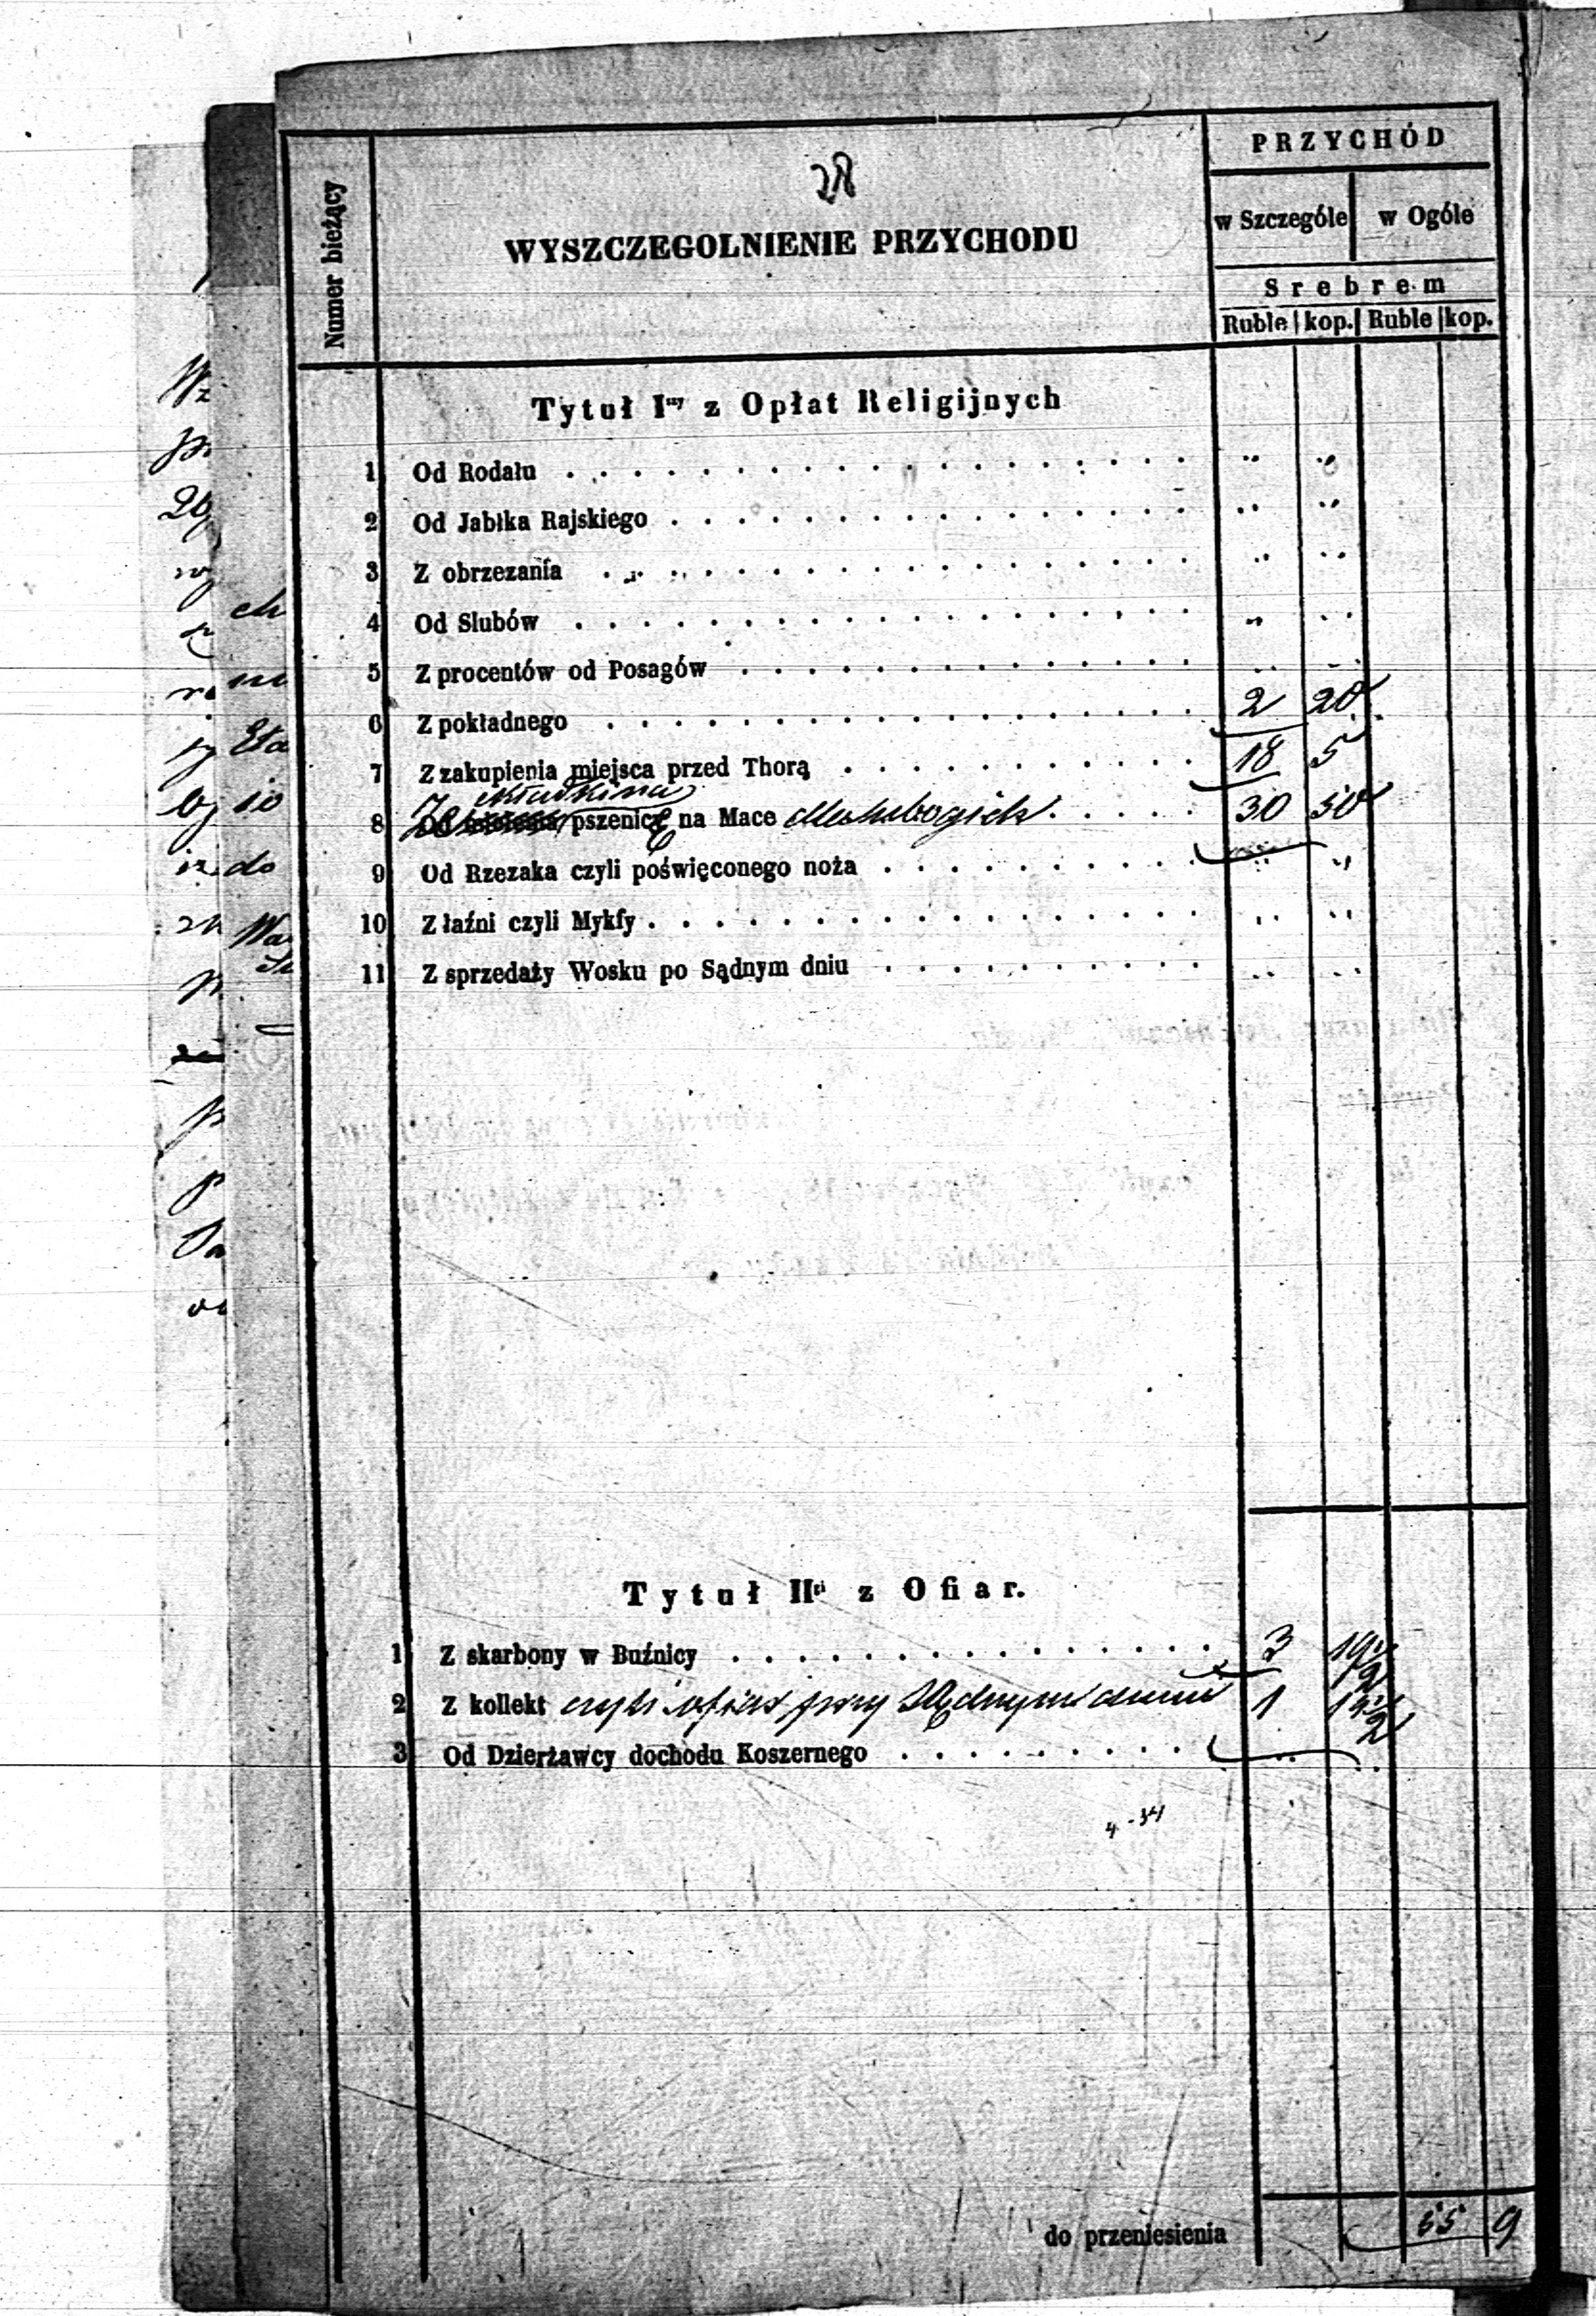 PRZYCHÓD
Numer bieżący
28
WYSZCZEGOLNIENIE PRZYCHODU
w Szczególe w Ogóle
Srebrem
Ruble kop. Ruble kop.
Tytuł Iszy z Opłat Religijnych
1 Od Rodału
2 Od Jabłka Rajskiego
3 Z obrzezania
4 Od Slubów
5 Z procentów od Posagów
6 Z pokładnego 2 20
7 Z zakupienia miejsca przed Thorą 18 5
8 Z pszenicę na Mace dla ubogich 30 50
9 Od Rzezaka czyli poświęconego noża
10 Z łaźni czyli Mykfy
11 Z sprzedaży Wosku po Sądnym dniu
Tytuł IIgi z Ofiar.
1 Z skarbony w Buźnicy 3 19 1/2
2 Z kollekt czyli ofiar przy Sądnym dniu 1 14 1/2
3 Od Dzierżawcy dochodu Koszernego
4-34
do przeniesienia 55 9